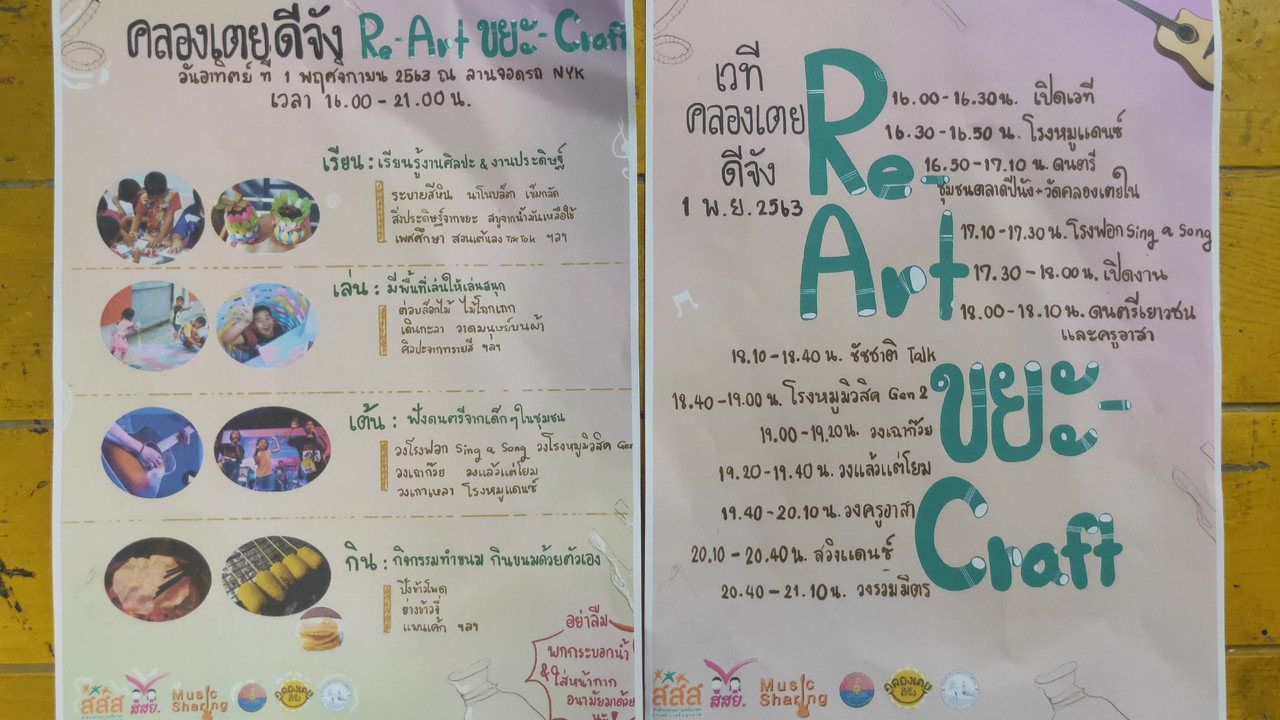 คลองเตยดีจัง Re-Art ขยะ-Craft
วันอาทิตย์ ที่ 1 พฤศจิกายน 2563 ณ ลานจอดรถ NYK
เวลา 16.00 - 21.00 น.
เรียน : เรียนรู้งานศิลปะ & งานประดิษฐ์
ระบายสีหิน นาโนบล็อก เข็มกลัด
สิ่งประดิษฐ์จากขยะ สบู่จากน้ำมันเหลือใช้
เพศศึกษา สอนเต้นเพลง TikTok ฯลฯ
เล่น : มีพื้นที่เล่นให้เล่นสนุก
ต่อบล็อกไม้ ไม้โถกเถก
เดินกะลา วาดมนุษย์บนผ้า
ศิลปะจากทรายสี ฯลฯ
เต้น : ฟังดนตรีจากเด็กๆในชุมชน
วงโรงฟอก Sing a Song วงโรงหมูมิวสิค Gen
วงเฉาก๊วย วงแล้วแต่โยม
วงเกาเหลา โรงหมูแดนซ์
กิน : กิจกรรมทำขนม กินขนมด้วยตัวเอง
ปิ้งข้าวโพด
ย่างข้าวจี่
แพนเค้ก ฯลฯ
อย่าลืม
พกกระบอกน้ำ
& ใส่หน้ากาก
อนามัยมาด้วย
สสส
สสย.
Music
Sharing
คลองเตย
ดีจัง
เวที
คลองเตย
ดีจัง
1 พ.ย. 2563
Re-
Art
ขยะ-
Craft
16.00 - 16.30 น. เปิดเวที
16.30 - 16.50 น. โรงหมูแดนซ์
16.50 - 17.10 น. ดนตรี
ชุมชนตลาดปีนัง+วัดคลองเตยใน
17.10 - 17.30 น. โรงฟอก Sing a Song
17.30 - 18.00 น. เปิดงาน
18.00 - 18.10 น. ดนตรีเยาวชน
และครูอาสา
18.10 - 18.40 น. ชัชชาติ Talk
18.40 - 19.00 น. โรงหมูมิวสิค Gen 2
19.00 - 19.20 น. วงเฉาก๊วย
19.20 - 19.40 น. วงแล้วแต่โยม
19.40 - 20.10 น. วงครูอาสา
20.10 - 20.40 น. สวิงแดนซ์
20.40 - 21.10 น. วงรวมมิตร
สสส
สสย.
Music
Sharing
คลองเตย
ดีจัง